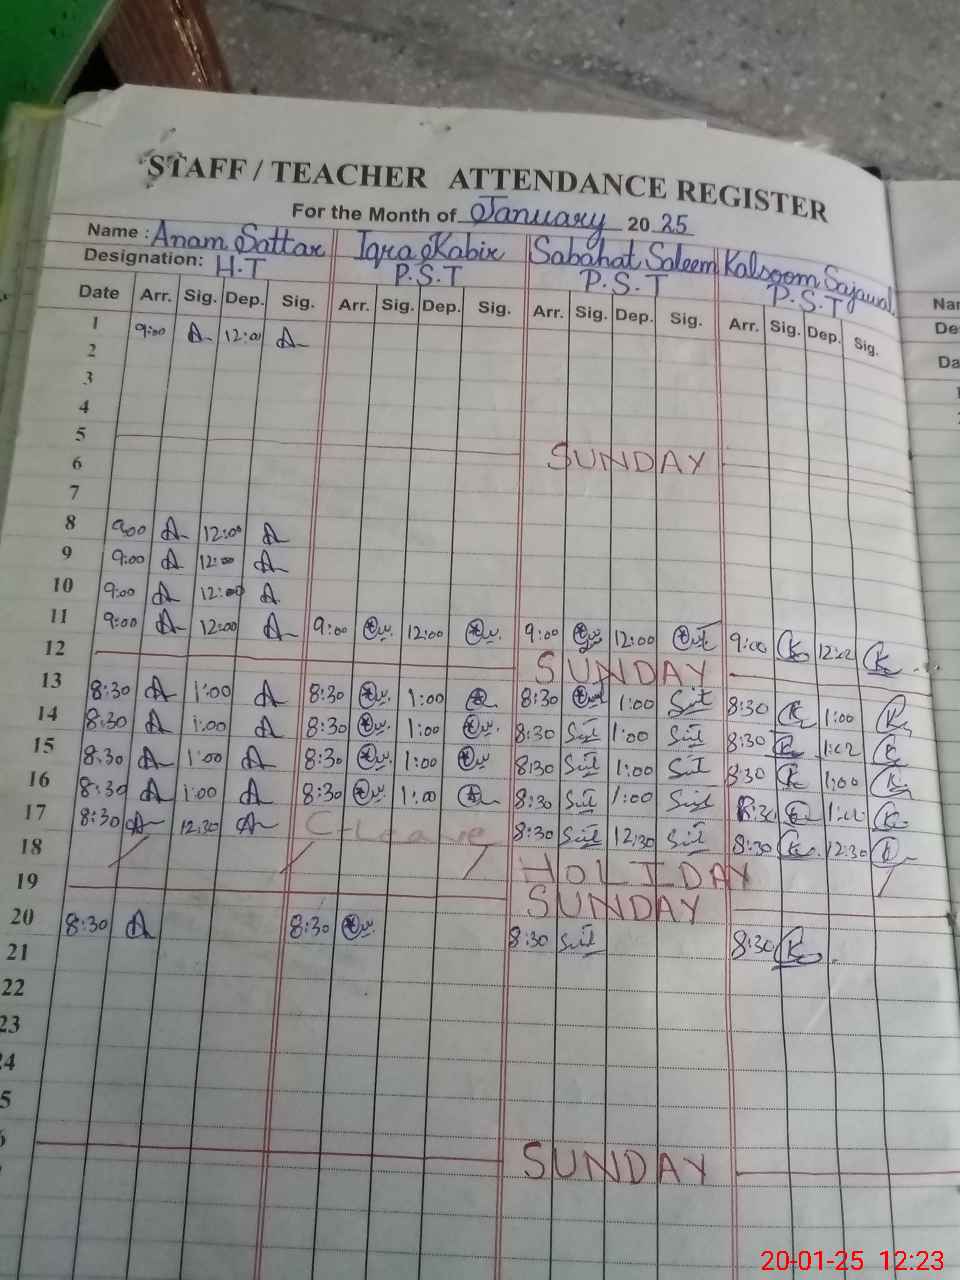 STAFF / TEACHER ATTENDANCE REGISTER
For the Month of January 20 25
Name : Anam Sattar Iqra Kabir Sabahat Saleem Kalsoom Sajawal
Designation: H.T P.S.T P.S.T P.S.T
Date Arr. Sig. Dep. Sig. Arr. Sig. Dep. Sig. Arr. Sig. Dep. Sig. Arr. Sig. Dep. Sig.
1 9:00 A 12:00 A
2
3
4
5 SUNDAY
6
7
8 9:00 A 12:00 A
9 9:00 A 12:00 A
10 9:00 A 12:00 A
11 9:00 A 12:00 A 9:00 12:00 9:00 12:00 9:00 K 12:00 K
12 SUNDAY
13 8:30 A 1:00 A 8:30 1:00 8:30 1:00 8:30 K 1:00 K
14 8:30 A 1:00 A 8:30 1:00 8:30 1:00 8:30 K 1:00 K
15 8:30 A 1:00 A 8:30 1:00 8:30 1:00 8:30 K 1:00 K
16 8:30 A 1:00 A 8:30 1:00 8:30 1:00 8:30 1:00 K
17 8:30 A 12:30 A C-Leave 8:30 12:30 8:30 K 12:30 K
18 HOLIDAY
19 SUNDAY
20 8:30 A 8:30 8:30 8:30 K
21
22
23
24
SUNDAY
Na
De
Da
20-01-25 12:23